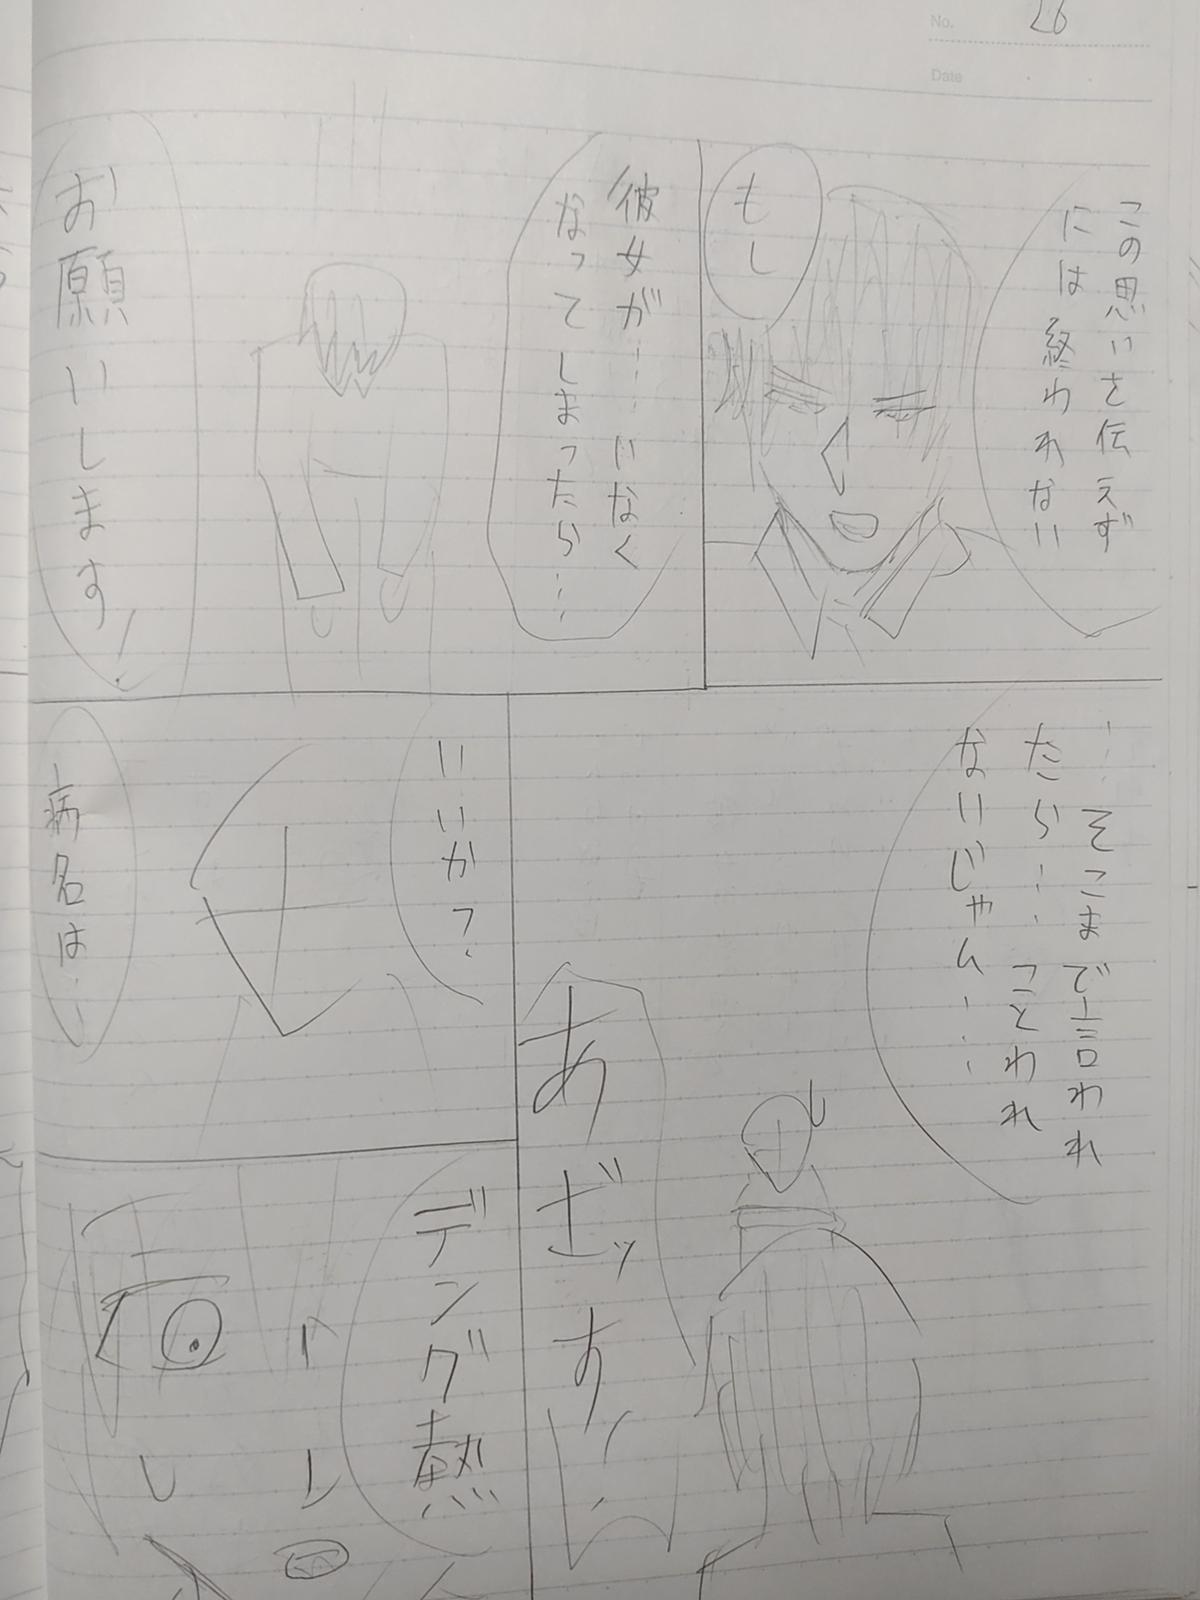 No. 26
Date
この思いを伝えず
には終われない
もし
彼女が……いなく
なってしまったら……
お願いします!
…そこまで言われ
たら…ことわれ
ないじゃん…
あざッす!
いいか?
病名は…
デング熱